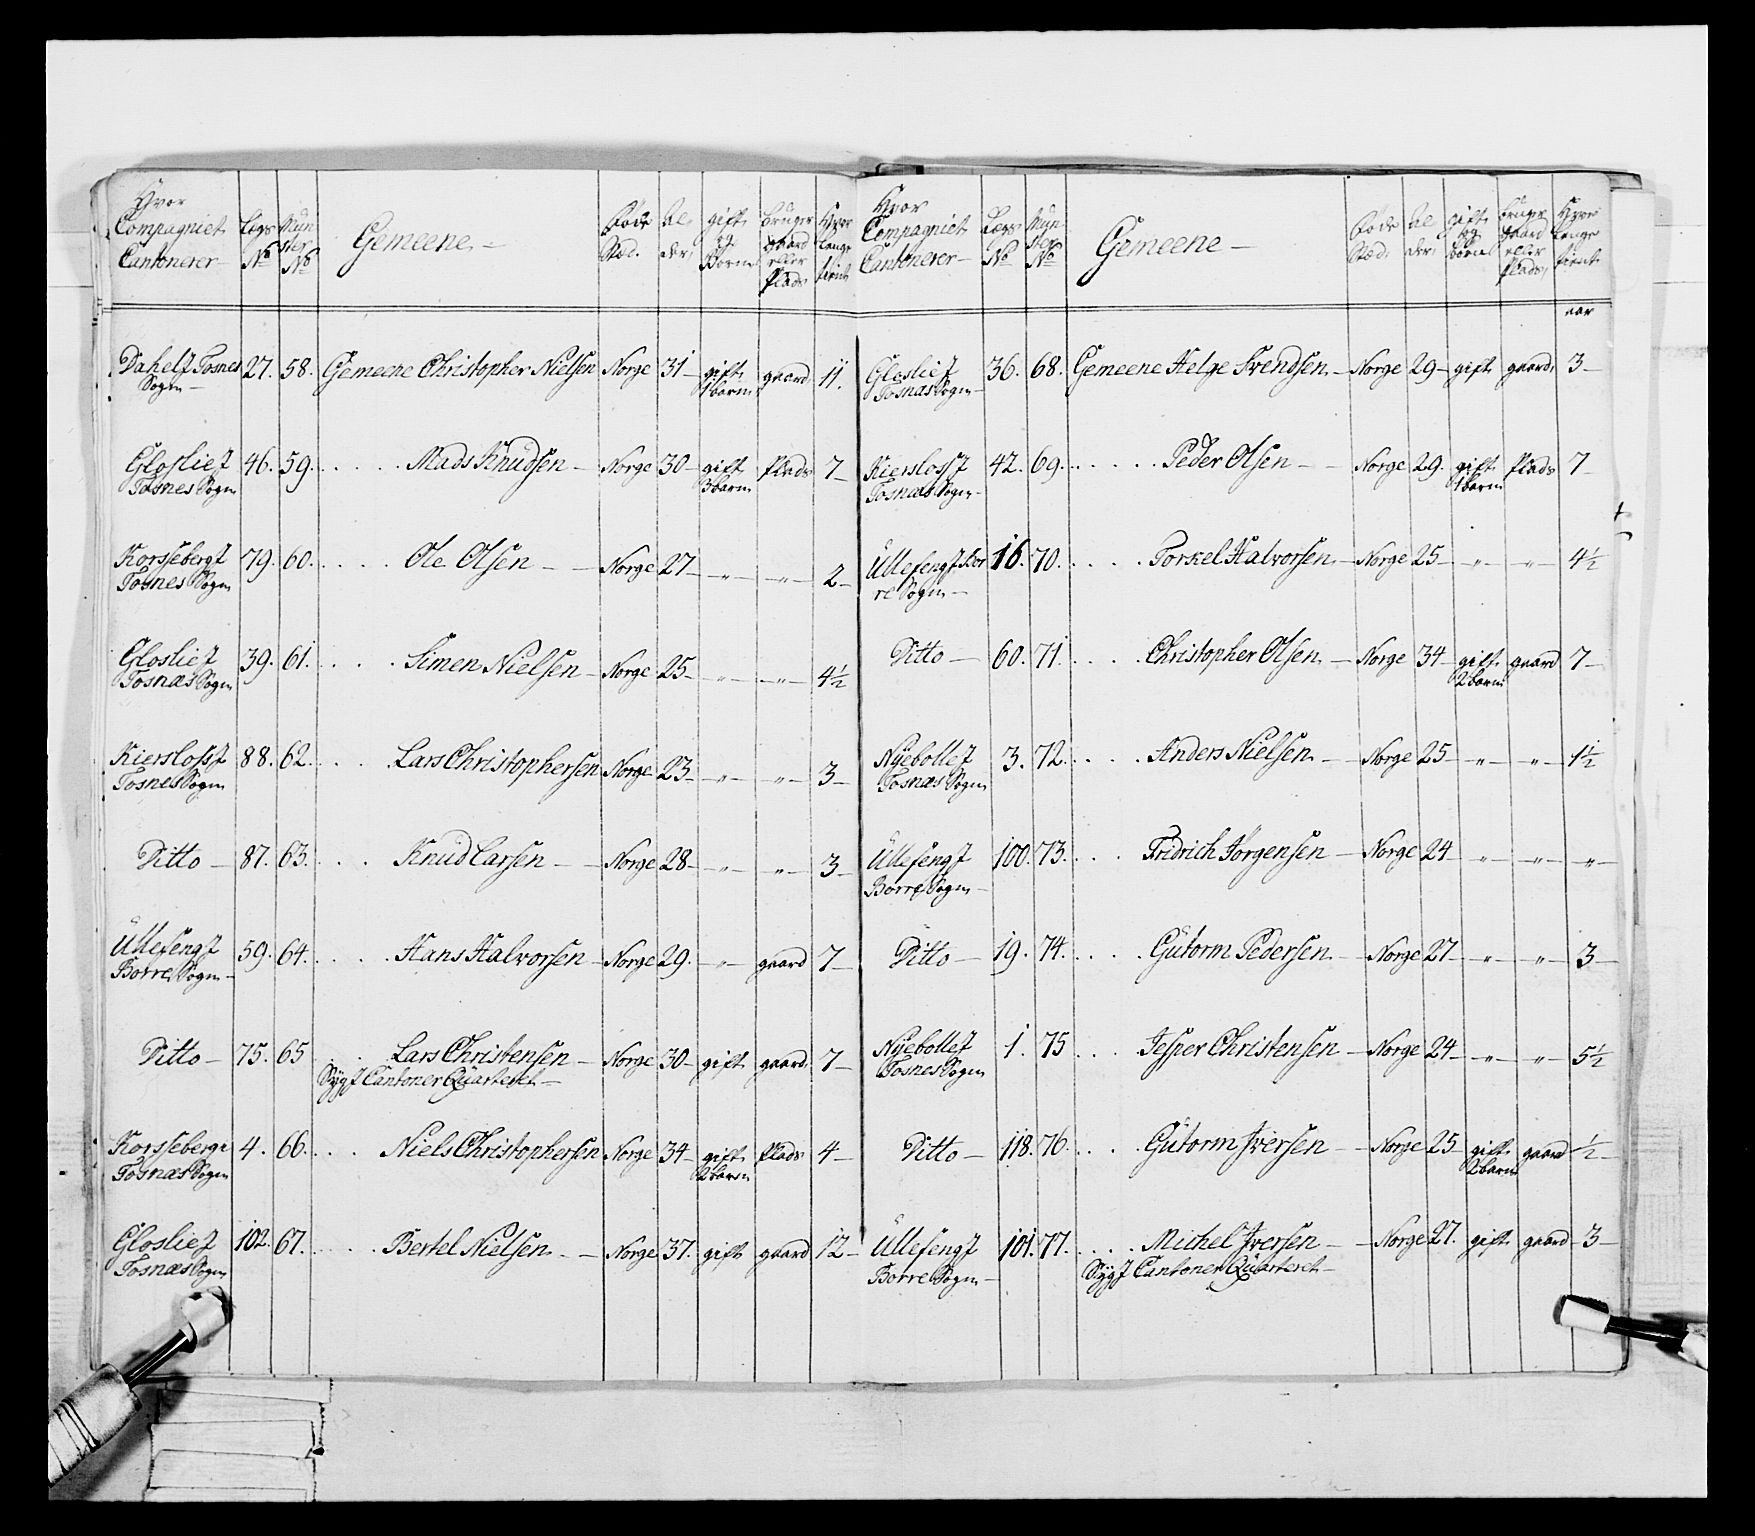 Hvor Compagniet Cantonerer — Legs No Mynster No Gemeene — Føde Stæd. Alder, gift og Børn bruger gaard eller Plads Hvor længe tient
Dahelj Tosnes Sogn — 27. 58. Gemeene Christopher Nielsen Norge 31 — gift 1 barn gaard 11.
Gloslie J Tosnes Sogn 46. 59. . . . . . Mads Knudsen — Norge 30 — gift 3 barn Plads 7 —
Korssebergt Tosnes Sogn 79. 60. . . . . Ole Olsen — — Norge 27 — „ — „ — 2 —
Gloslie J Tosnæs Sogn 39. 61. . . . . Simen Nielsen — Norge 25 — „ — „ — 4½
Kierslofs J Tosnes Sogn 88. 62. . . . Lars Christophersen Norge 23 — „ — „ — 3 —
Ditto — 87. 63. . . . Knud Larsen — — Norge 28 — „ — „ — 3 —
Ullefeng J Borre Sogn — 59. 64. . . . . Hans Halvorsen — Norge 29. — „ — gaard 7 —
Ditto — 75. 65 . . Lars Christensen — Norge 30 — gift gaard, 7 —
Syg J Cantoner Qvarteret —
Korsseberge Tosnæs Sogn 4. 66. . . . Niels Christophersen Norge 34 — gift 2 barn Plads 4 —
Gloslie J Tosnæs Sogn 102. 67. . . . . Bertel Nielsen — — Norge 37. gift gaard 12 —
Hvor Compagniet Cantonerer — Lægs No Mynster No Gemeene — Føde Stæd. Alder, gift og børn bruger gaard eller Plads, Hvor længe tient
aar
Gloslie J Tosnæs Sogn — 36. 68. Gemeene Helge Svendsen — Norge 29 — gift gaard, 3 —
Kierslofs J Tosnæs Sogn — 42. 69. . . . . . Peder Olsen — — Norge 29. gift 1 barn Plads 7 —
Ullefeng J Borre Sogn — 16. 70. . . . . Torkel Halvorsen — Norge 25 — „ — „ — 4½
Ditto — 60. 71. . . . . Christopher Olsen — Norge 34 — gift 2 barn gaard 7 —
Nyebølle J Tosnæs Sogn 3. 72. . . . . Anders Nielsen — — Norge 25 — „ — „ — 1½
Ullefeng J Borre Sogn — 100. 73. . . . Fridrich Jorgensen — Norge 24 — „ — „ — „ —
Ditto — 19. 74. . . . . Gutorm Pedersen — Norge 27 — „ — „ — 3 —
Nyebølle J Tosnes Sogn 1. 75 . . . Jesper Christensen — Norge 24 — „ — „ — 5½
Ditto — 118. 76. . . . Gutorm Iversen — — Norge 25 — gift 2 barn gaard ½ —
Ullefeng J Borre Sogn — 101. 77. . . . . Michel Iversen — — Norge 27. gift gaard — 3 —
Syg J Cantoner Qvarteret —